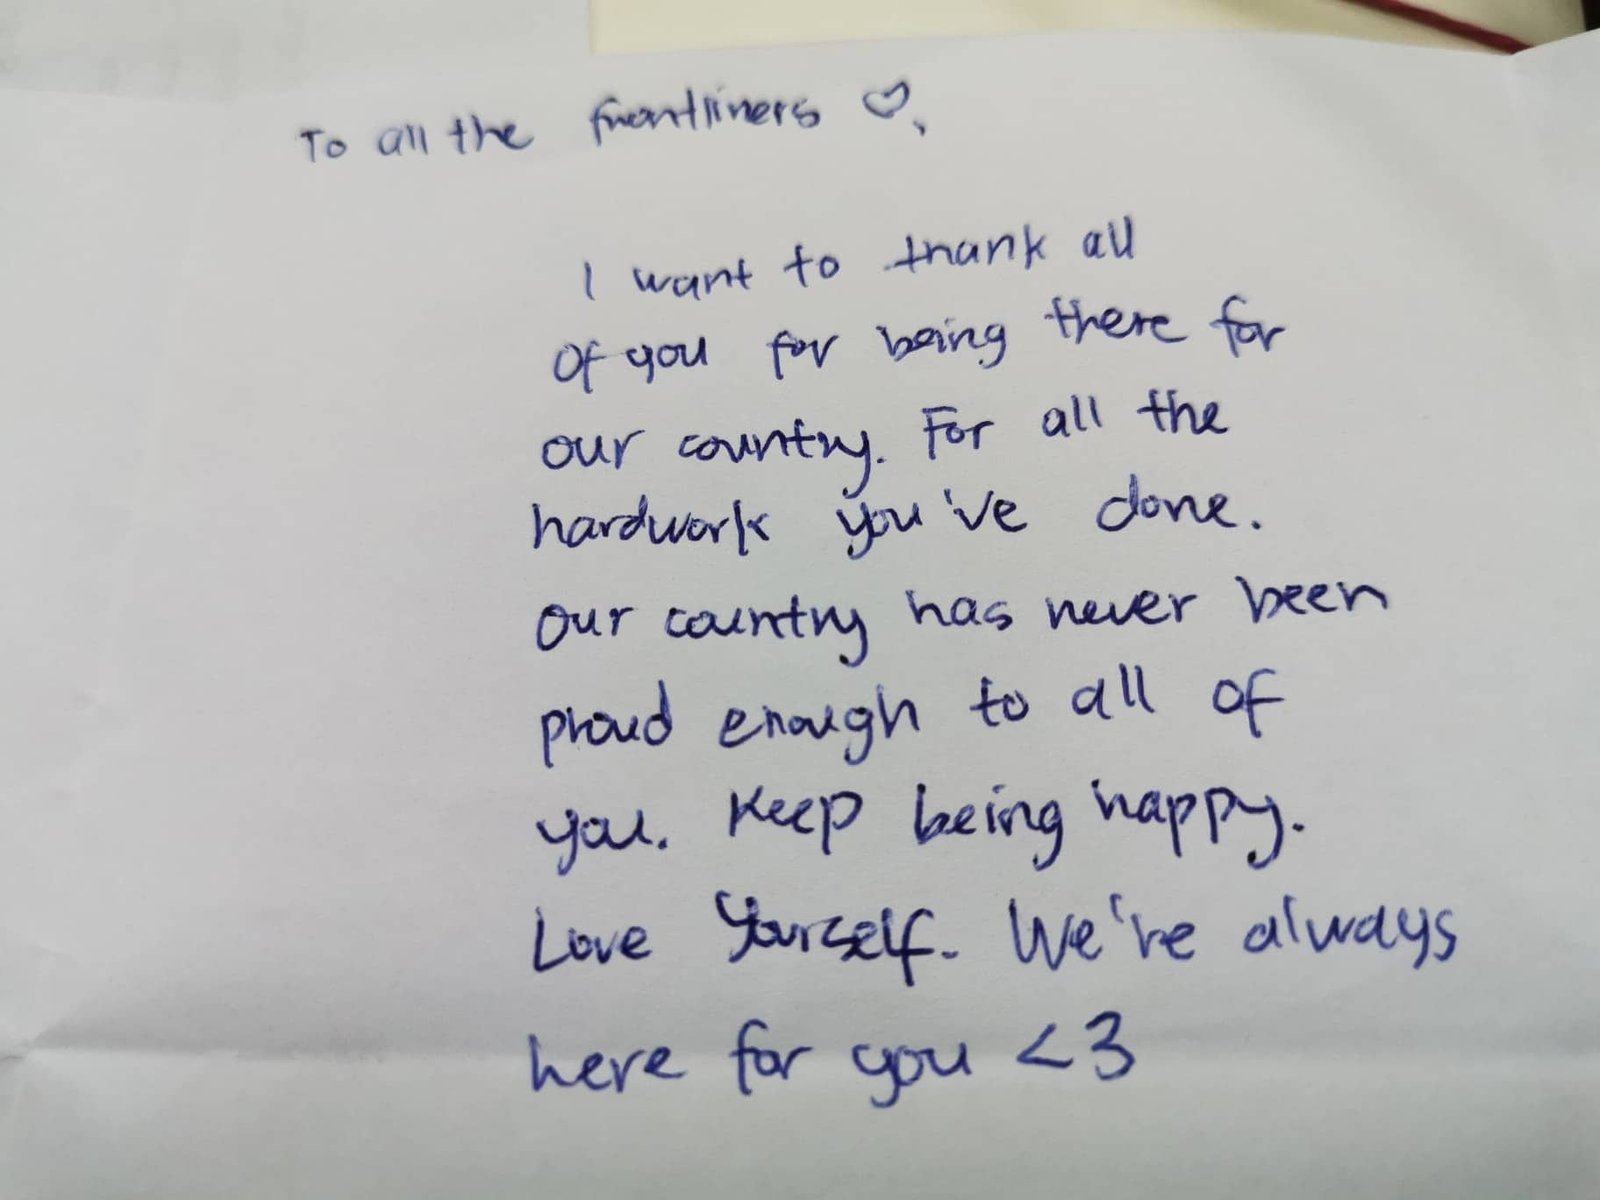 To all the frontliners ♡,
I want to thank all
of you for being there for
our country. For all the
hardwork you've done.
Our country has never been
proud enough to all of
you. Keep being happy.
Love Yourself. We're always
here for you <3